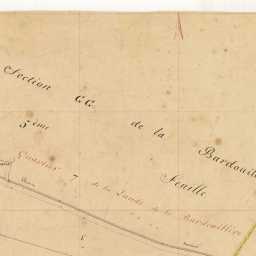 Section C.C. de la Bardouill
5ème Feuille
Quartier 7 de la Lande de la Bardouillère